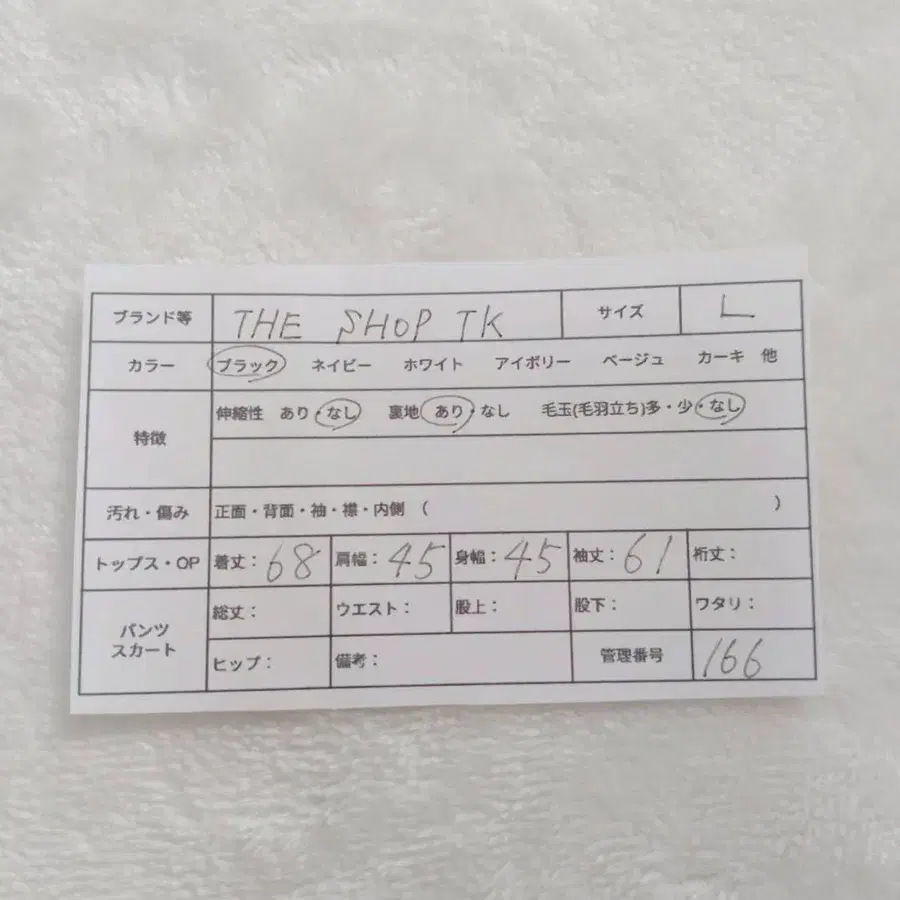 ブランド等 THE SHOP TK サイズ L
カラー ブラック ネイビー ホワイト アイボリー ベージュ カーキ 他
特徴 伸縮性 あり・なし 裏地 あり・なし 毛玉(毛羽立ち)多・少・なし
汚れ・傷み 正面・背面・袖・襟・内側 ( )
トップス・OP 着丈：68 肩幅：45 身幅：45 袖丈：61 裄丈：
パンツ
スカート
総丈： ウエスト： 股上： 股下： ワタリ：
ヒップ： 備考： 管理番号 166